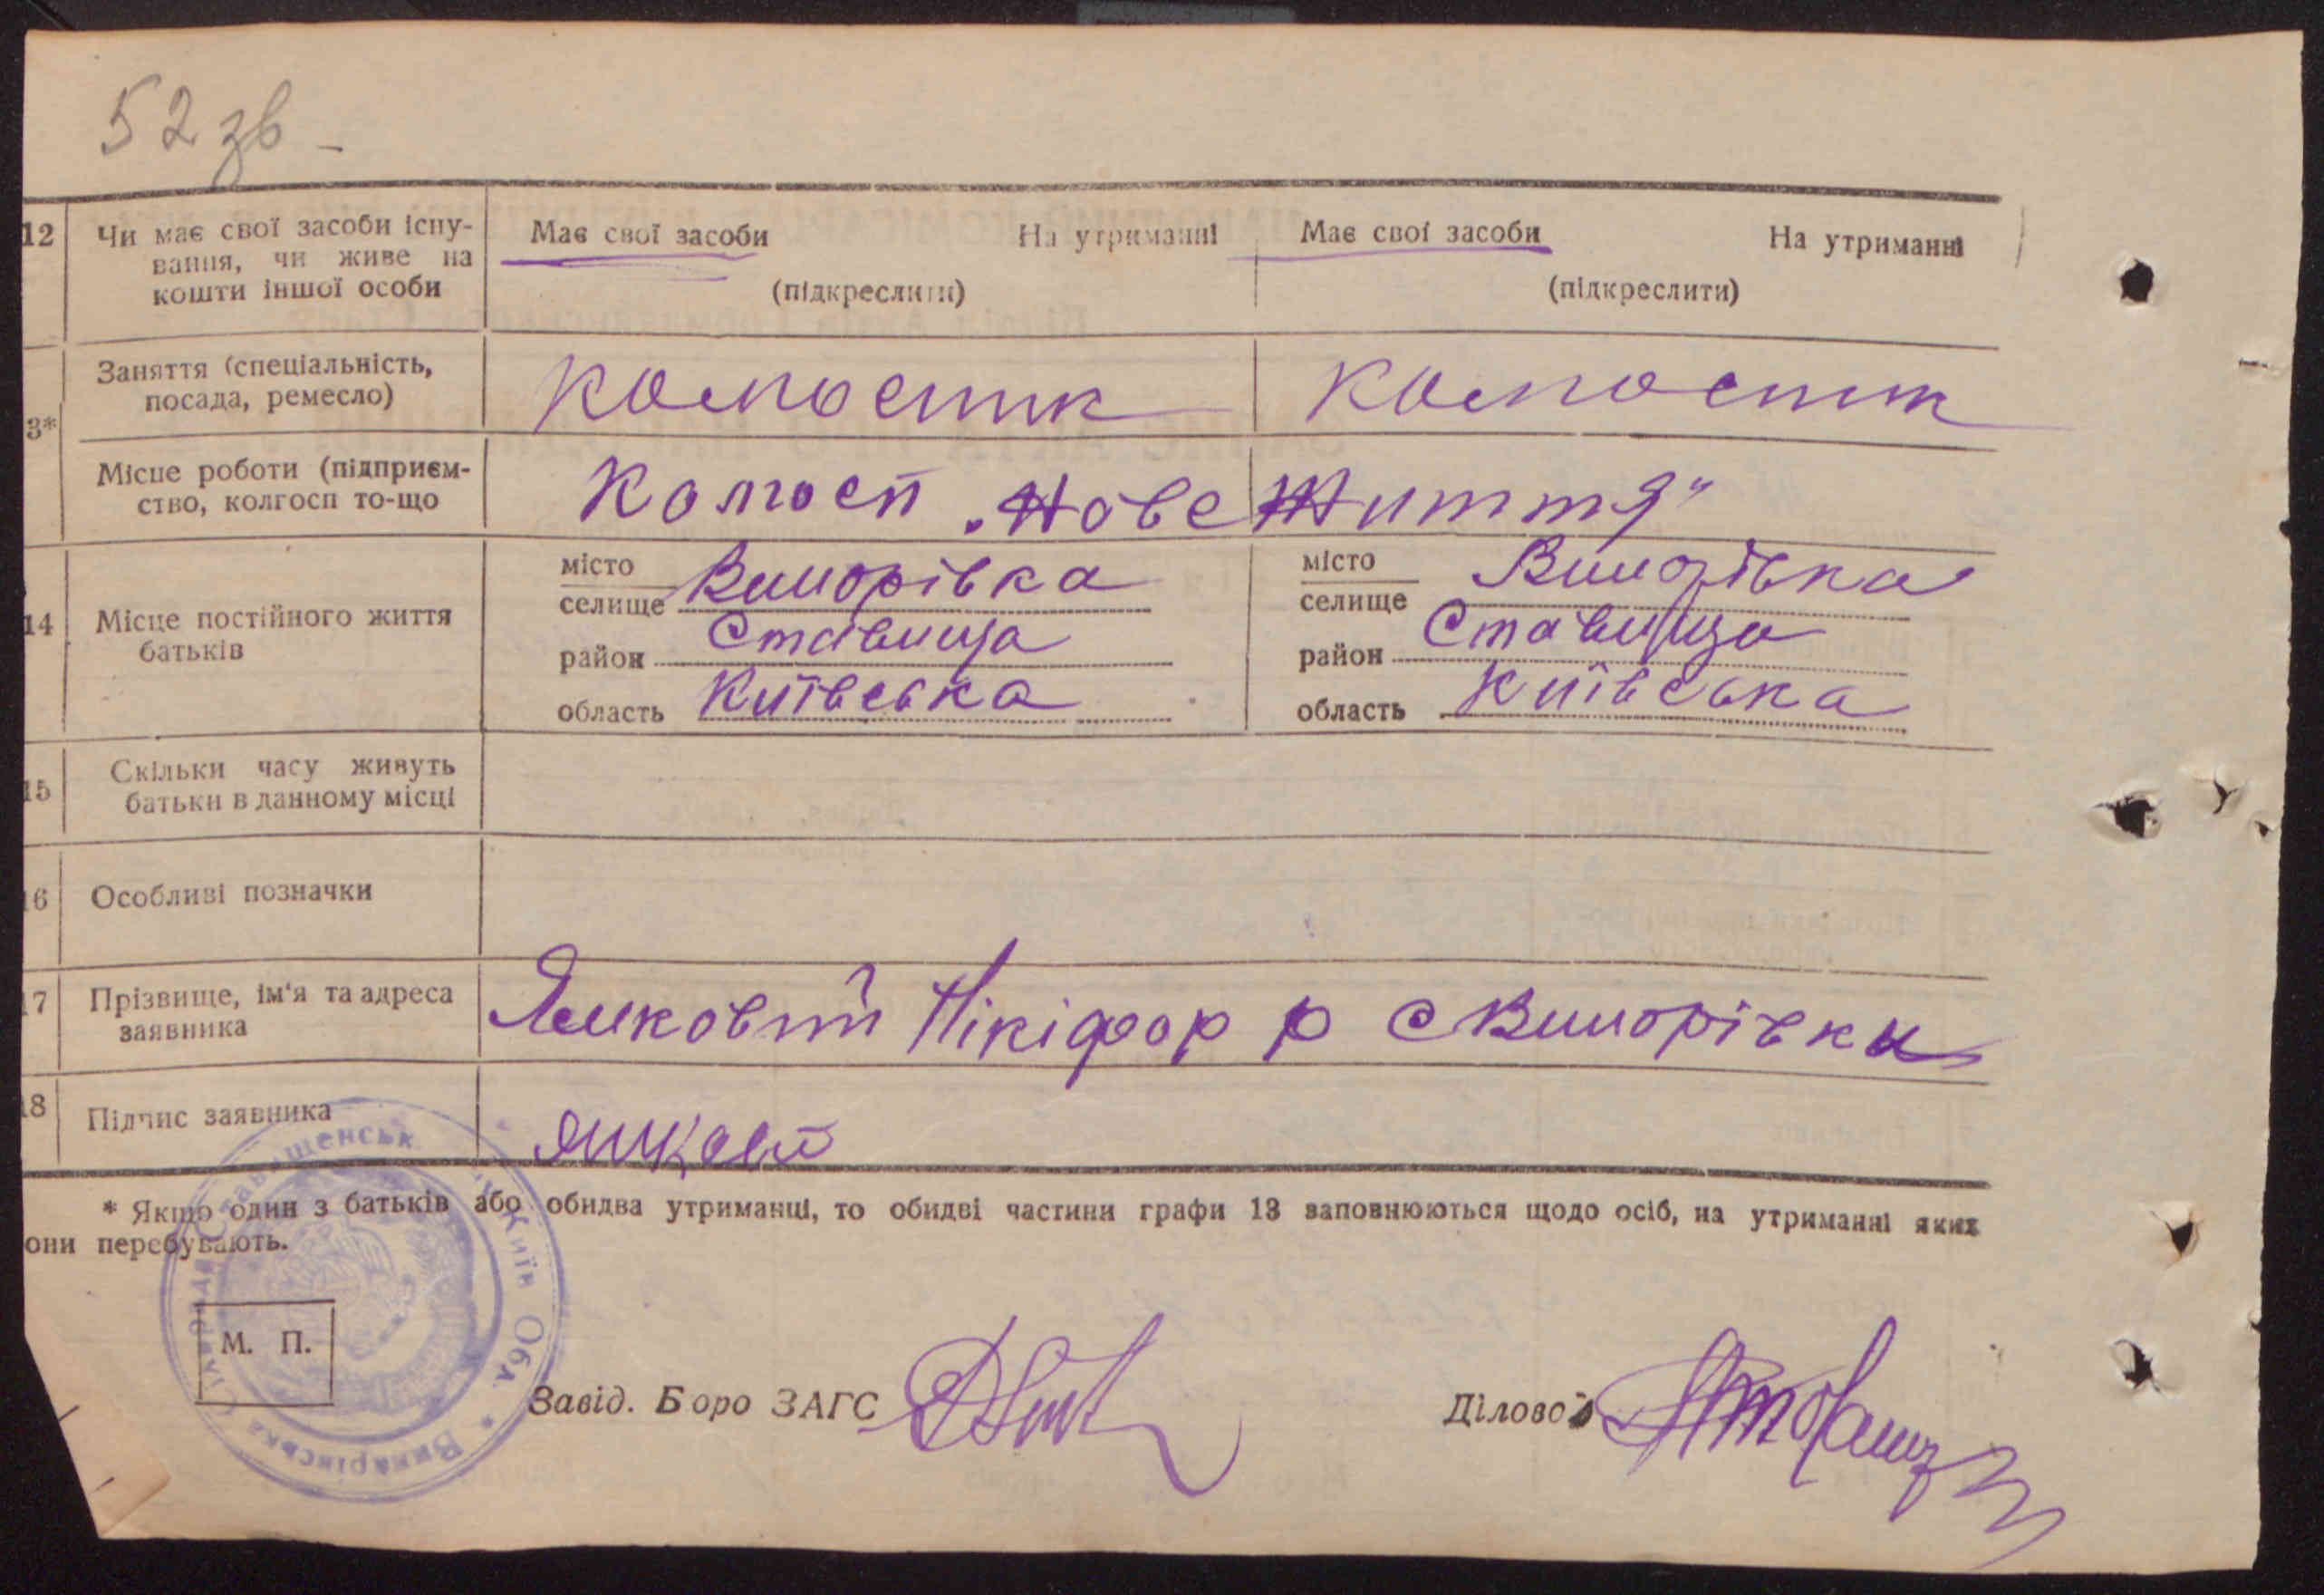 52 зв
12 Чи має свої засоби існу- Має свої засоби На утриманні Має свої засоби На утриманні
вання, чи живе на
кошти іншої особи (підкреслити) (підкреслити)
Заняття (спеціальність,
посада, ремесло) колгоспник колгоспник
3*
Місце роботи (підприєм- Колгосп „Нове Життя"
ство, колгосп то-що
місто Винорівка місто Винорівка
селище селище
14 Місце постійного життя Ставища Ставища
батьків район район
область Київська область Київська
15 Скільки часу живуть
батьки в данному місці
16 Особливі позначки
17 Прізвище, ім'я та адреса Нікіфор р с Винорівки
заявника
18 Підпис заявника
* Якщо один з батьків або обидва утриманці, то обидві частини графи 13 заповнюються щодо осіб, на утриманні яких
они перебувають.
М. П.
Завід. Боро ЗАГС Діловод
Київ Обл. * Винарівська